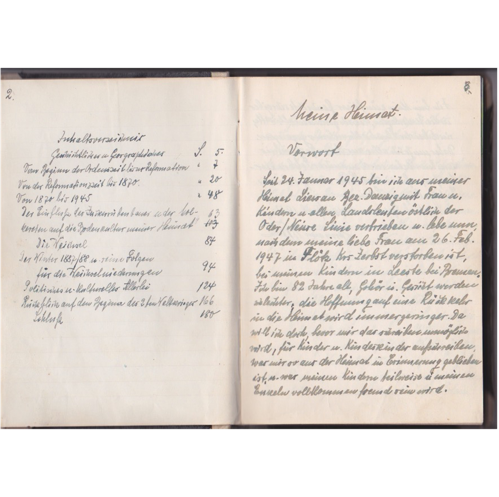 2.
Inhaltsverzeichnis
Geschichtliches u. Geographisches S. 5
Vom Beginn der Ordenszeit bis zur Reformation " 7
Von der Reformationszeit bis 1870 " 20
Von 1870 bis 1945 " 48
Der Einfluss der
auf den meiner Heimat 63
Die Weichsel 84
Der Winter 1887/88 u. seine Folgen
für die Weichselniederungen 94
Politisches u. Kulturelles 124
Rückblick auf den Beginn des 2ten Weltkrieges 166
Schluß 180
3.
Meine Heimat.
Vorwort
Seit 24. Januar 1945 bin ich aus meiner
Heimat Bez. Danzig mit Frau u.
Kindern u. allen Landsleuten östlich der
Oder/Neisse Linie vertrieben u. lebe nun
nachdem meine liebe Frau am 26. Feb.
1947 in bei Zerbst verstorben ist,
bei meinen Kindern in Leeste bei Bremen.
Ich bin 82 Jahre alt, Gehör u. Gesicht werden
schlechter, die Hoffnung auf eine Rückkehr
in die Heimat wird immer geringer. Da
will ich doch, bevor mir das schreiben unmöglich
wird, für Kinder u. Kindeskinder aufschreiben,
was mir er aus der Heimat in Erinnerung geblieben
ist, u. was meinen Kindern teilweise u. meinen
Enkeln vollkommen fremd sein wird.